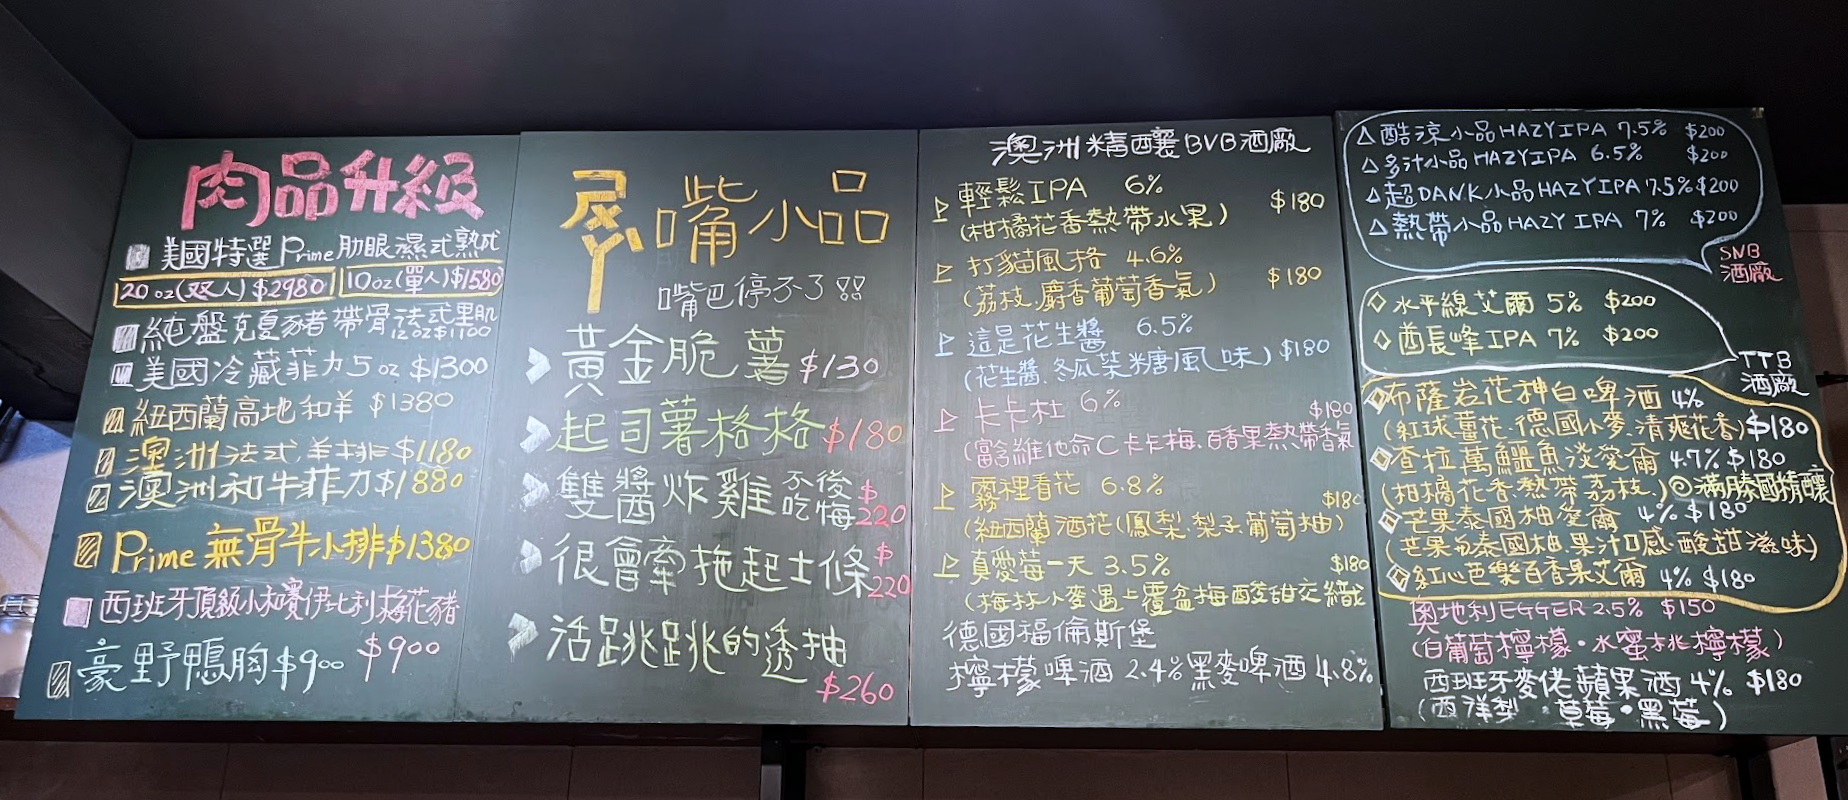 肉品升級
美國特選Prime肋眼濕式熟成
20oz(双人)$2980 10oz(單人)$1580
純盤克夏豬帶骨法式里肌
12oz$1100
美國冷藏菲力5oz $1300
紐西蘭高地和羊 $1380
澳洲法式羊排$1180
澳洲和牛菲力$1880
Prime無骨牛小排$1380
西班牙頂級小和寶伊比利梅花豬
$900
豪野鴨胸$900
嘴小品
嘴巴停不了
黃金脆薯$130
起司薯格格$180
雙醬炸雞 不吃後悔 $220
很會牽拖起士條 $220
活跳跳的透抽
$260
澳洲精釀BVB酒廠
輕鬆IPA 6% $180
(柑橘花香熱帶水果)
打貓風格 4.6% $180
(荔枝.麝香葡萄香氣)
這是花生醬 6.5%
(花生醬.冬瓜菜糖風味) $180
卡卡杜 6% $180
(富含維他命C卡卡梅.百香果熱帶香氣
霧裡看花 6.8% $180
(紐西蘭酒花(鳳梨.梨子.葡萄柚)
真愛莓一天 3.5% $180
(梅林小麥遇上覆盆梅酸甜交織
德國福倫斯堡
檸檬啤酒 2.4% 黑麥啤酒 4.8%
△酷涼小品HAZY IPA 7.5% $200
△多汁小品HAZY IPA 6.5% $200
△超DANK小品HAZY IPA 7.5% $200
△熱帶小品HAZY IPA 7% $200
SNB
酒廠
◇水平線艾爾 5% $200
◇酋長峰IPA 7% $200
TTB
酒廠
布薩岩花神白啤酒 4%
(紅球薑花.德國小麥.清爽花香)$180
查拉萬鱷魚淡愛爾 4.7% $180
(柑橘花香.熱帶荔枝.)◎滿勝國精釀
芒果泰國柚愛爾 4% $180
(芒果勾泰國柚.果汁口感酸甜滋味)
紅心芭樂百香果艾爾 4% $180
奧地利EGGER 2.5% $150
(白葡萄檸檬·水蜜桃檸檬)
西班牙麥佬蘋果酒 4% $180
(西洋梨·草莓·黑莓)